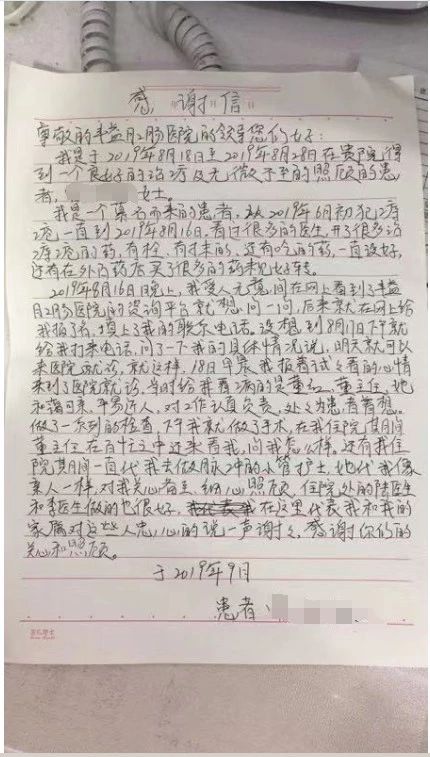 感谢信
尊敬的丰益肛肠医院的领导您们好:
我是于2019年8月18日至2019年8月28日在贵院得
到一个良好的治疗及无微不至的照顾的患
者, 女士。
我是一个慕名而来的患者,从2019年6月初犯痔
疮一直到2019年8月16日。看过很多的医生,开了很多治
痔疮的药,有栓、有抹的,还有吃的药,一直没好,
还有在外面药店买了很多的药未见好转。
2019年8月16日晚上,我爱人无意间在网上看到了丰益
肛肠医院的咨询平台就想问一问,后来就在网上给
我报了名,填上了我的联系电话,没想到8月17日下午就
给我打来电话,问了一下我的具体情况说,明天就可以
来医院面诊,就这样,18日早晨我抱着试々看的心情
来到了医院就诊,当时给我看病的是董 董主任,她
和蔼可亲,平易近人,对工作认真负责,处々为患者着想。
做了一系列的检查,下午我就做了手术,在我住院其间
董主任在百忙之中还来看我,问我怎么样。还有我住
院其间一直代我去做脉冲的小 护士,她代我像
亲人一样,对我关心 照顾,住院处的陆医生
和李医生做的也很好,在这里代表我和我的
家属对这些人忠心的说一声谢々,感谢你们的
关心和照顾。
于2019年9月
患者: